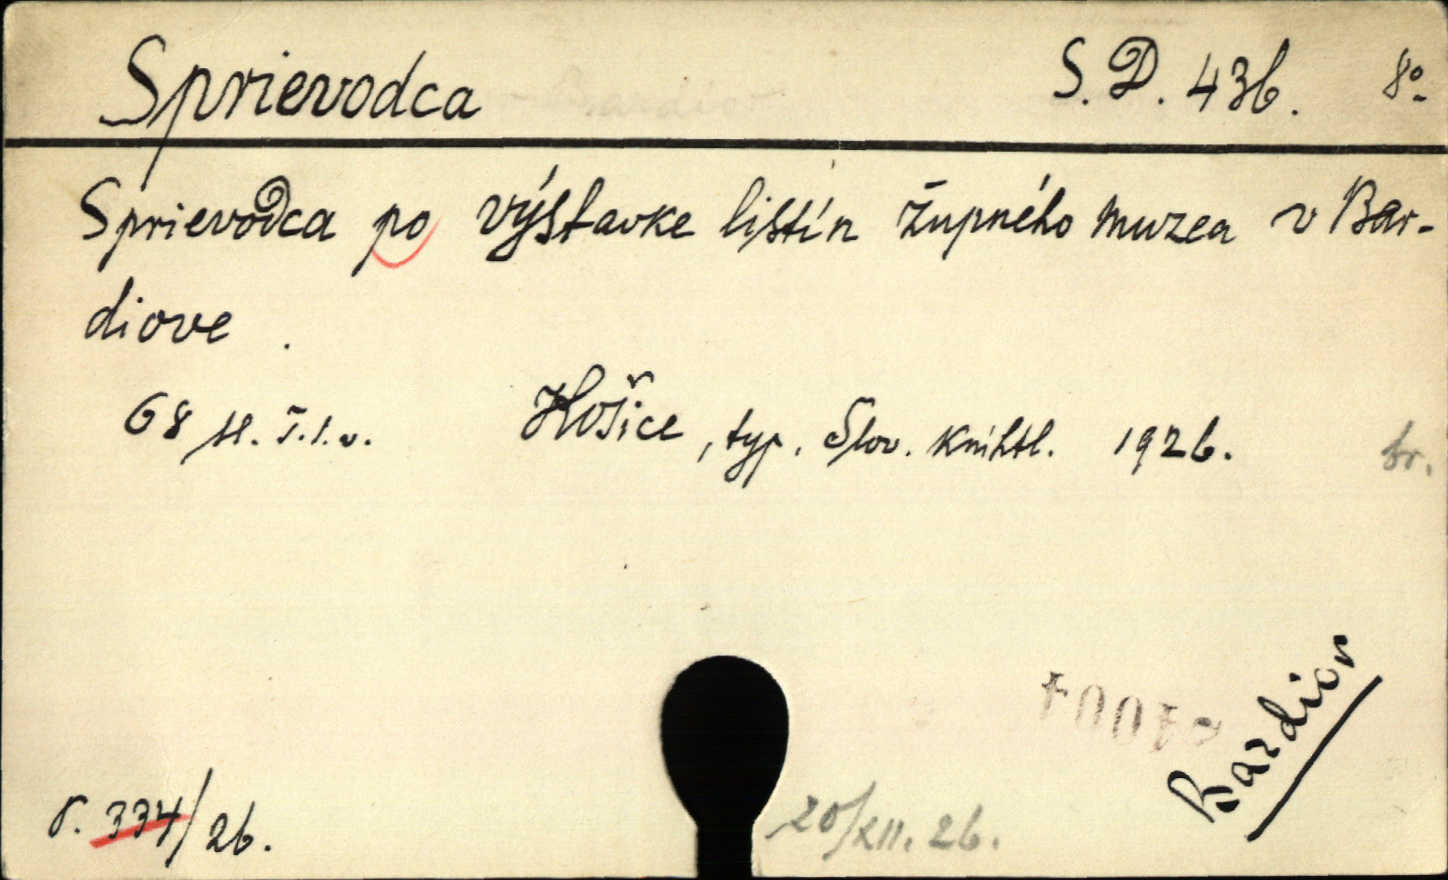 Sprievodca S. D. 436. 8º
Sprievodca po výstavke listín župného muzea v Bar-
diove.
68 st. Košice, typ. Slov. Kníhtl. 1926. br.
Bardiov
r. 334/26. 20/XII. 26.